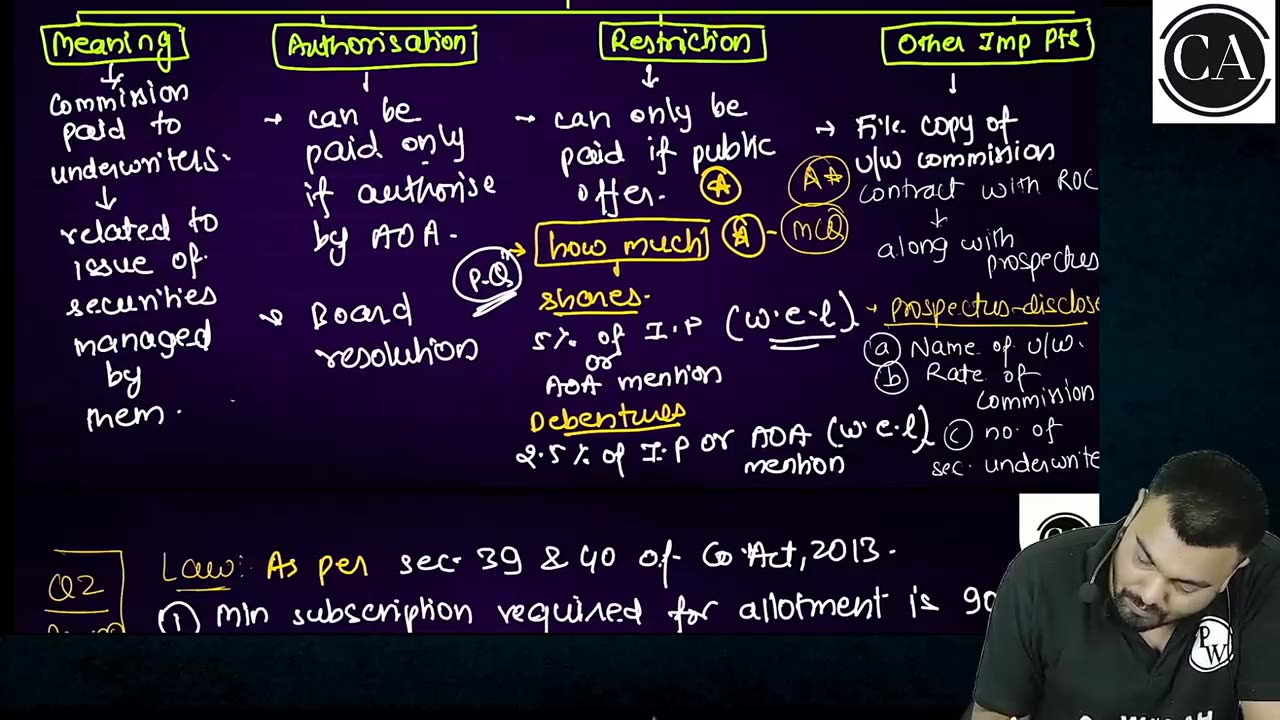 Meaning
Commission
paid to
underwriters.
related to
issue of
securities
managed
by
them.
Authorisation
can be
paid only
if authorise
by AOA.
Board
resolution
Restriction
can only be
paid if public
offer.
how much
MCQ
P.Qs
shares.
5% of I.P (w.e.l)
or
AOA mention
Debentures
2.5% of I.P or AOA (w.e.l)
mention
Other Imp Pts
File copy of
u/w commission
contract with ROC
along with
prospectus
prospectus-disclose
a Name of u/w.
b Rate of
commission
c no. of
sec. underwrite
CA
Q2
Law: As per sec. 39 & 40 of Co. Act, 2013.
1 Min subscription required for allotment is 90
PW